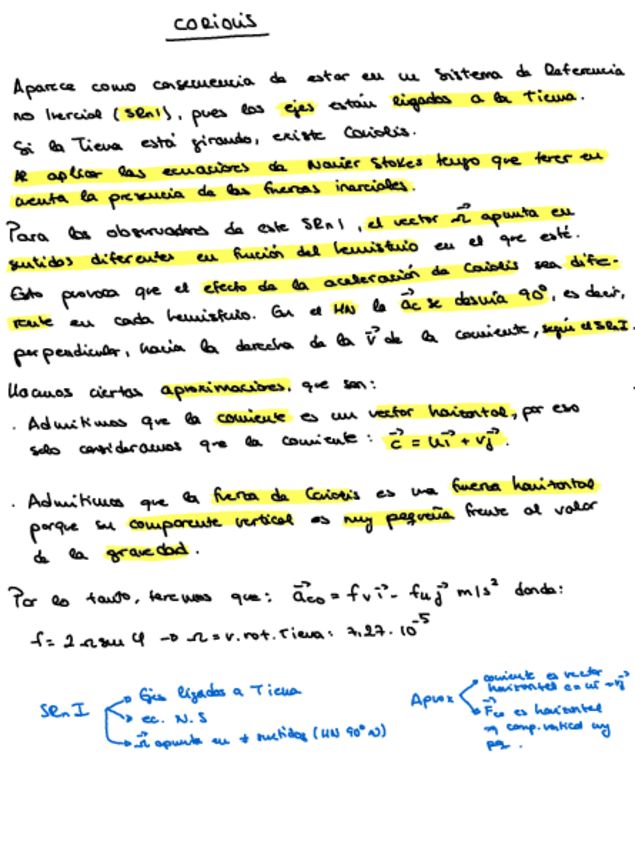 CORIOLIS
Aparece como consecuencia de estar en un Sistema de Referencia
no Inercial (SRnI), pues los ejes están ligados a la Tierra.
Si la Tierra está girando, existe Coriolis.
Al aplicar las ecuaciones de Navier Stokes tengo que tener en
cuenta la presencia de las fuerzas inerciales.
Para los observadores de este SRnI, el vector Ω⃗ apunta en
sentidos diferentes en función del hemisferio en el que esté.
Esto provoca que el efecto de la aceleración de Coriolis sea dife-
rente en cada hemisferio. En el HN la a⃗c se desvía 90°, es decir,
perpendicular, hacia la derecha de la v⃗ de la corriente, según el SRnI.
Hacemos ciertas aproximaciones, que son:
. Admitimos que la corriente es un vector horizontal, por eso
solo consideramos que la corriente: c⃗ = ui⃗ + vj⃗.
. Admitimos que la fuerza de Coriolis es una fuerza horizontal
porque su componente vertical es muy pequeña frente al valor
de la gravedad.
Por lo tanto, tenemos que: a⃗co = fvi⃗ - fuj⃗ m/s² donde:
f = 2Ω sen φ → Ω = v. rot. Tierra: 7,27·10⁻⁵
SRnI → Ejes ligados a Tierra
→ ec. N.S
→ Ω⃗ apunta en ≠ sentidos (HN 90° N)
Aprox → corriente es vector
horizontal c = ui⃗ + vj⃗
→ F⃗co es horizontal
comp. vertical muy
pq.